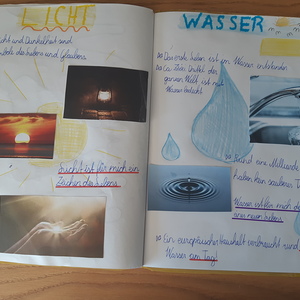 LICHT
Licht und Dunkelheit sind
Symbole des Lebens und Glaubens
Licht ist für mich ein
Zeichen des Lebens
WASSER
Das erste Leben ist im Wasser entstanden
Ca. zwei Drittel der
ganzen Welt ist mit
Wasser bedeckt
Rund eine Milliarde
haben kein sauberes
Wasser ist für mich d
eines neuen Lebens
Ein europäischer Haushalt verbraucht rund
Wasser am Tag!